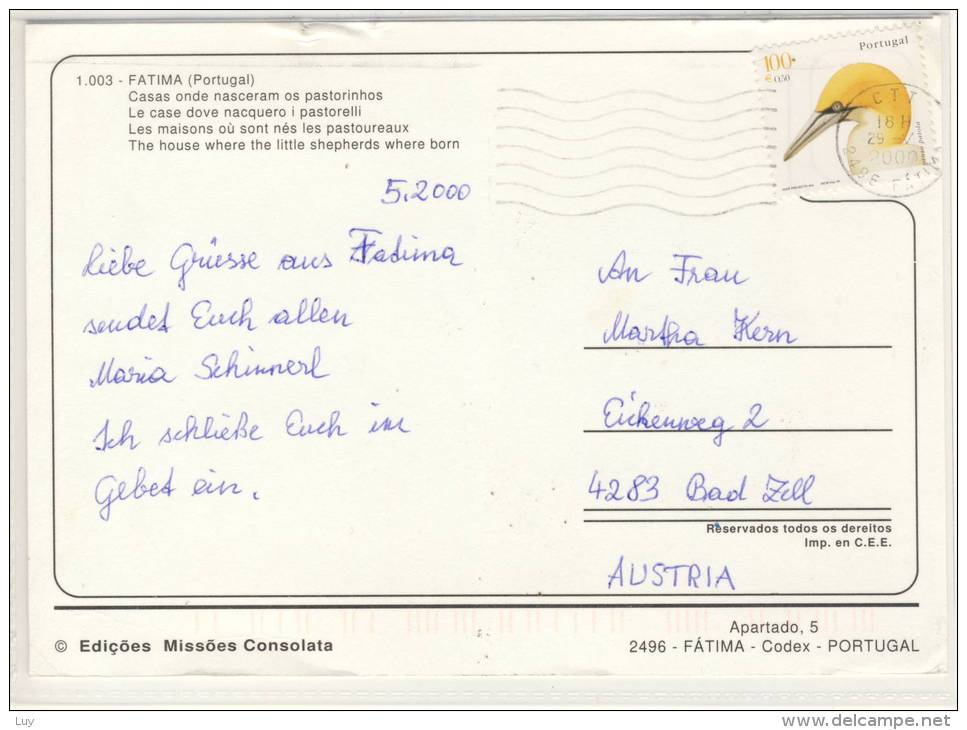 1.003 - FATIMA (Portugal)
Casas onde nasceram os pastorinhos
Le case dove nacquero i pastorelli
Les maisons où sont nés les pastoureaux
The house where the little shepherds where born
5.2000
Liebe Grüsse aus Fatima
sendet Euch allen
Maria Schinnerl
Ich schließe Euch im
Gebet ein.
Portugal
100•
€ 0,50
CTT
18H
29 - V
2000
An Frau
Martha Kern
Eichenweg 2
4283 Bad Zell
Reservados todos os dereitos
Imp. en C.E.E.
AUSTRIA
© Edições Missões Consolata
Apartado, 5
2496 - FÁTIMA - Codex - PORTUGAL
Luy
www.delcampe.net